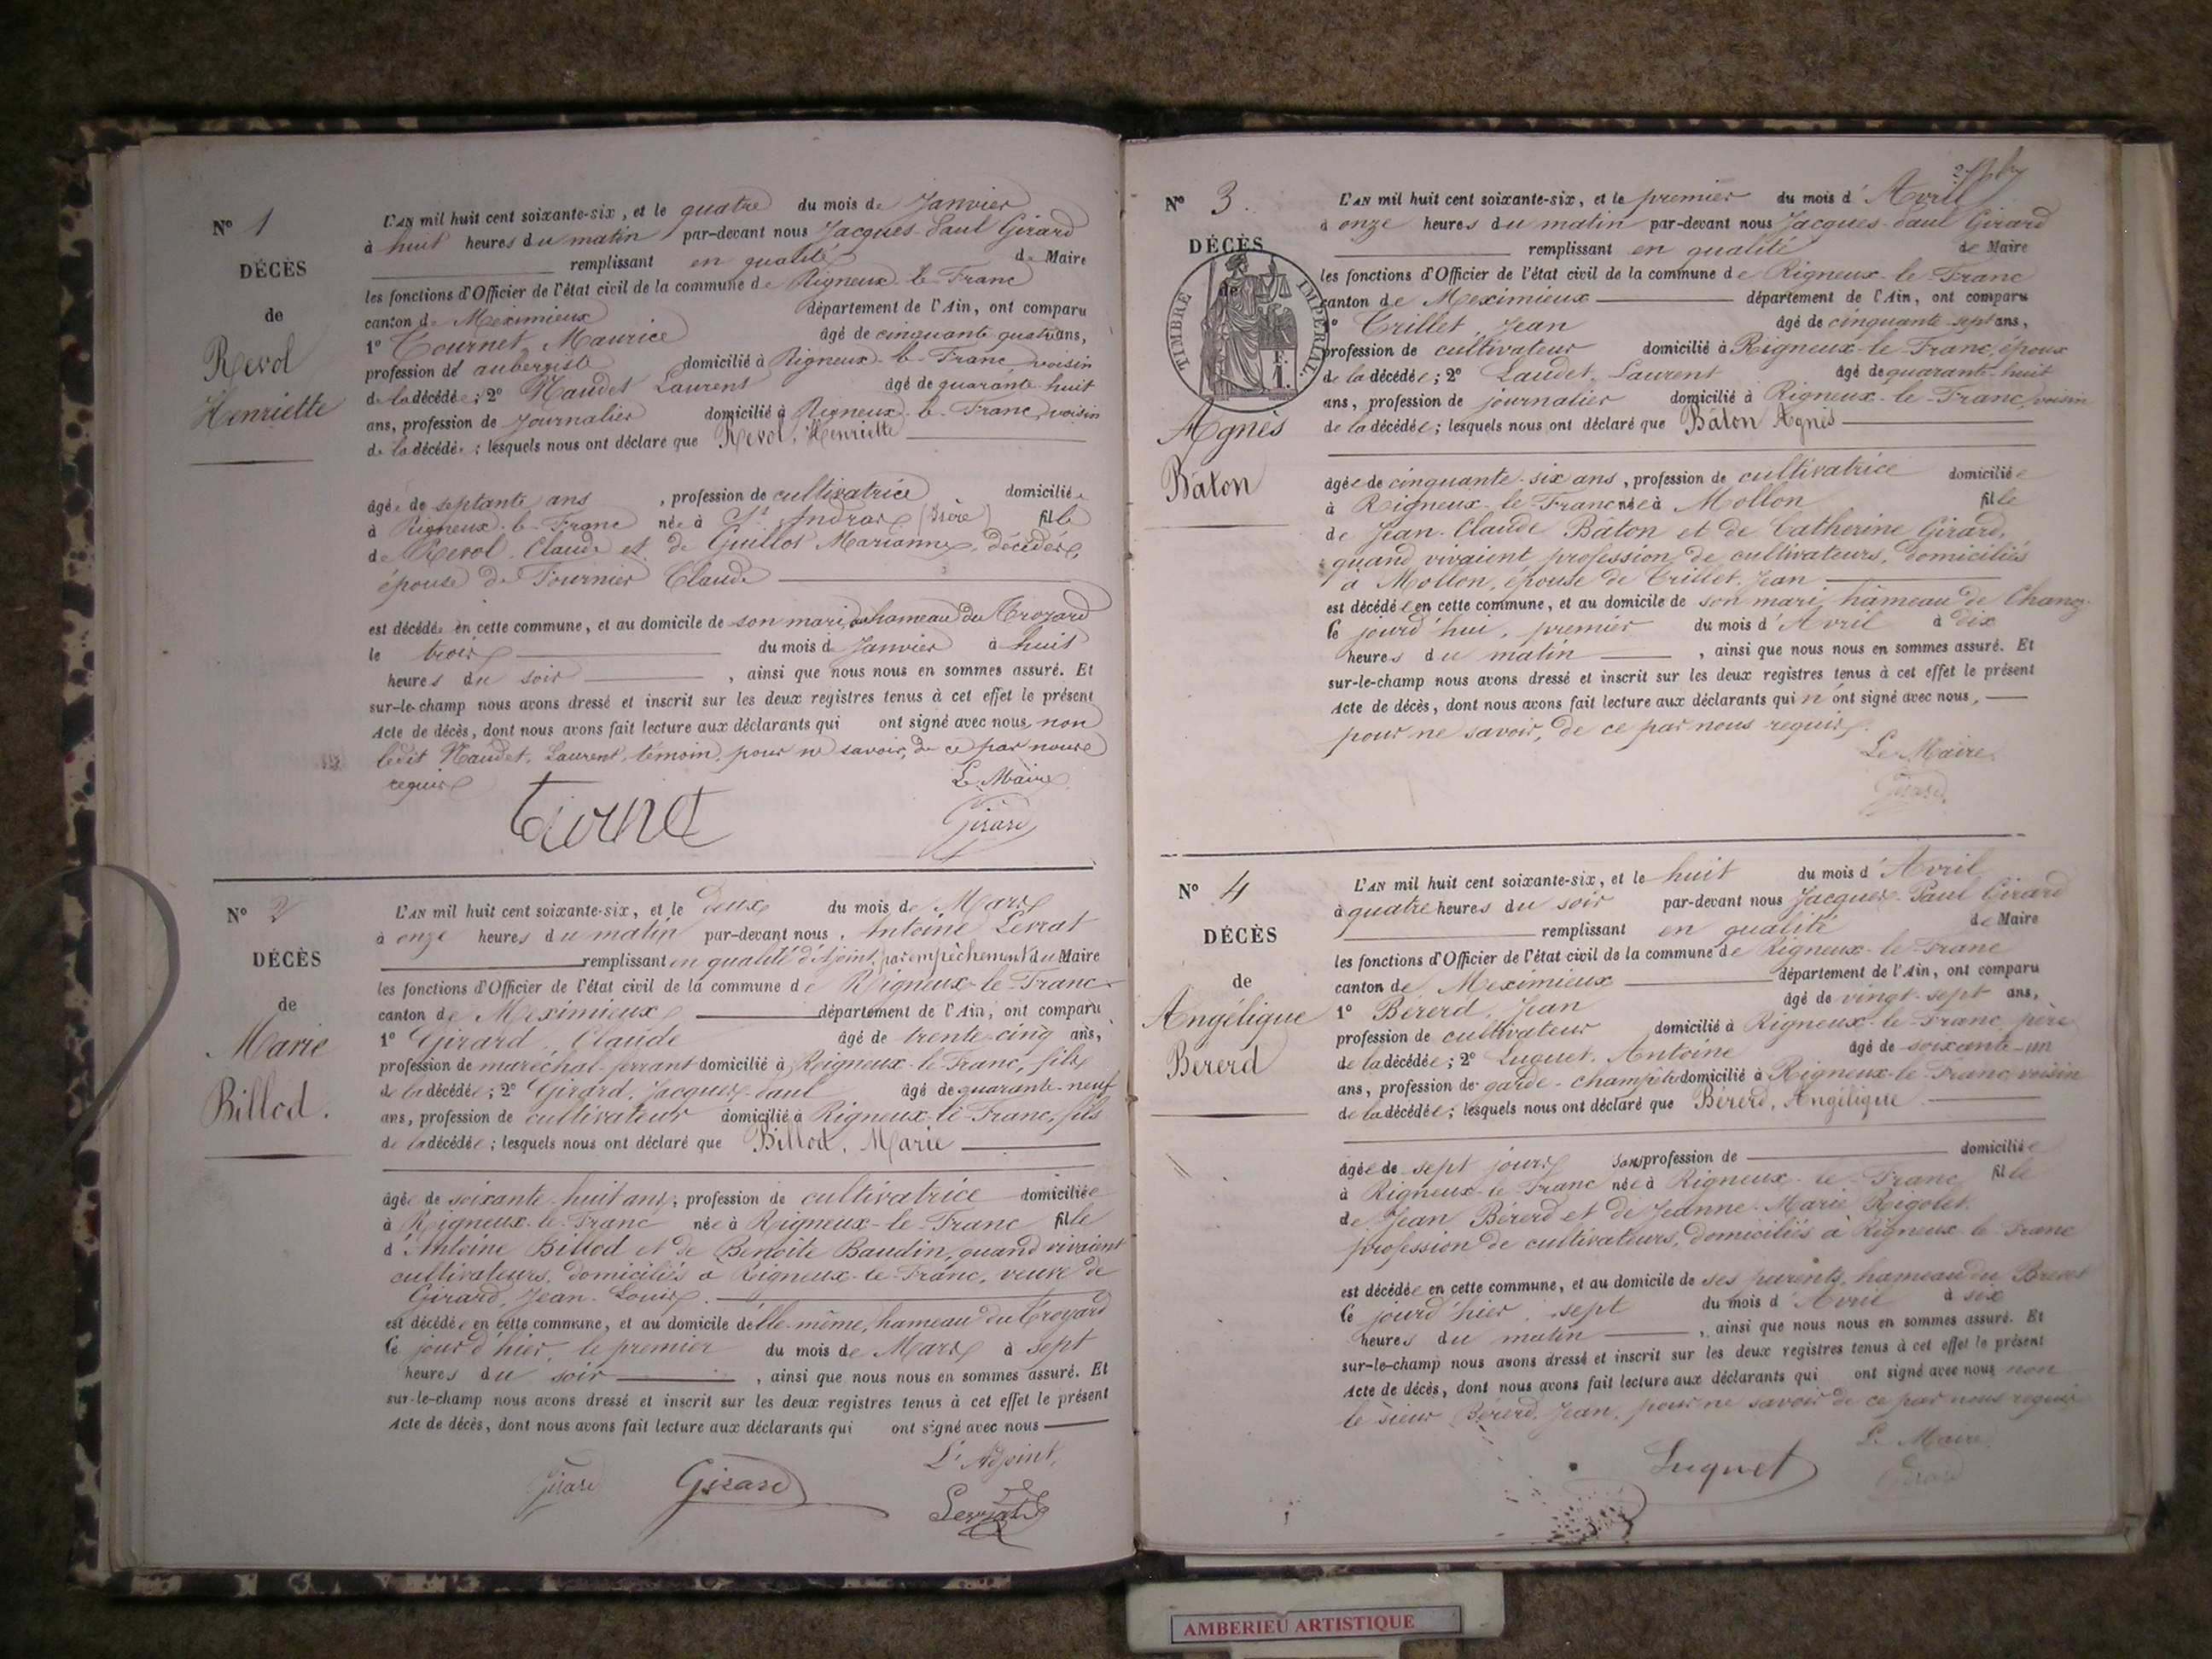 Nº 1
DÉCÈS
de
Revol
Henriette
L'AN mil huit cent soixante-six, et le quatre du mois de Janvier
à huit heures du matin par-devant nous Jacques-Paul Girard
remplissant en qualité de Maire
les fonctions d'Officier de l'état civil de la commune de Rigneux-le-Franc
canton de Meximieux département de l'Ain, ont comparu
1º Tournet, Maurice âgé de cinquante quatre ans,
profession de aubergiste domicilié à Rigneux-le-Franc voisin
de la décédée; 2º Naudet Laurent âgé de quarante-huit
ans, profession de Journalier domicilié à Rigneux-le-Franc, voisin
de la décédée; lesquels nous ont déclaré que Revol, Henriette
âgée de septante ans, profession de cultivatrice domiciliée
à Rigneux-le-Franc née à St Andras (Isère) fille
de Revol Claude et de Guillot Marianne, décédés,
épouse de Fournier Claude
est décédée en cette commune, et au domicile de son mari, au hameau du Trozard
le trois du mois de Janvier à huit
heures du soir, ainsi que nous nous en sommes assuré. Et
sur-le-champ nous avons dressé et inscrit sur les deux registres tenus à cet effet le présent
Acte de décès, dont nous avons fait lecture aux déclarants qui ont signé avec nous, non
ledit Naudet, Laurent, témoin, pour ne savoir, de ce par nous
requis
Le Maire
Girard
Nº 2
DÉCÈS
de
Marie
Billod.
L'AN mil huit cent soixante-six, et le deux du mois de Mars
à onze heures du matin par-devant nous, Antoine Levrat
remplissant en qualité d'Adjoint, par empêchement du Maire
les fonctions d'Officier de l'état civil de la commune de Rigneux-le-Franc
canton de Meximieux département de l'Ain, ont comparu
1º Girard, Claude âgé de trente-cinq ans,
profession de maréchal-ferrant domicilié à Rigneux-le-Franc, fils
de la décédée; 2º Girard, Jacques-Paul âgé de quarante-neuf
ans, profession de cultivateur domicilié à Rigneux-le-Franc, fils
de la décédée; lesquels nous ont déclaré que Billod, Marie
âgée de soixante-huit ans, profession de cultivatrice domiciliée
à Rigneux-le-Franc née à Rigneux-le-Franc fille
d'Antoine Billod et de Benoite Baudin, quand vivaient
cultivateurs, domiciliés à Rigneux-le-Franc, veuve de
Girard, Jean-Louis.
est décédée en cette commune, et au domicile d'elle-même, hameau du Trozard
le jour d'hier, le premier du mois de Mars à sept
heures du soir, ainsi que nous nous en sommes assuré. Et
sur-le-champ nous avons dressé et inscrit sur les deux registres tenus à cet effet le présent
Acte de décès, dont nous avons fait lecture aux déclarants qui ont signé avec nous
L'Adjoint,
Girard Girard Levrat
Nº 3.
DÉCÈS
de
TIMBRE IMPÉRIAL
Agnès
Bâton
L'AN mil huit cent soixante-six, et le premier du mois d'Avril
à onze heures du matin par-devant nous Jacques-Paul Girard
remplissant en qualité de Maire
les fonctions d'Officier de l'état civil de la commune de Rigneux-le-Franc
canton de Meximieux département de l'Ain, ont comparu
1º Trillet, Jean âgé de cinquante-sept ans,
profession de cultivateur domicilié à Rigneux-le-Franc, époux
de la décédée; 2º Laudet, Laurent âgé de quarante-huit
ans, profession de journalier domicilié à Rigneux-le-Franc, voisin
de la décédée; lesquels nous ont déclaré que Bâton Agnès
âgée de cinquante-six ans, profession de cultivatrice domiciliée
à Rigneux-le-Franc née à Mollon fille
de Jean-Claude Bâton et de Catherine Girard,
quand vivaient profession de cultivateurs, domiciliés
à Mollon, épouse de Trillet, Jean
est décédée en cette commune, et au domicile de son mari, hameau de Chanoz
le jourd'hui, premier du mois d'Avril à dix
heures du matin, ainsi que nous nous en sommes assuré. Et
sur-le-champ nous avons dressé et inscrit sur les deux registres tenus à cet effet le présent
Acte de décès, dont nous avons fait lecture aux déclarants qui n'ont signé avec nous,
pour ne savoir, de ce par nous requis.
Le Maire
Girard
Nº 4
DÉCÈS
de
Angélique
Bererd
L'AN mil huit cent soixante-six, et le huit du mois d'Avril
à quatre heures du soir par-devant nous Jacques-Paul Girard
remplissant en qualité de Maire
les fonctions d'Officier de l'état civil de la commune de Rigneux-le-Franc
canton de Meximieux département de l'Ain, ont comparu
1º Bererd, Jean âgé de vingt-sept ans,
profession de cultivateur domicilié à Rigneux-le-Franc, père
de la décédée; 2º Luquet, Antoine âgé de soixante-un
ans, profession de garde-champêtre domicilié à Rigneux-le-Franc, voisin
de la décédée; lesquels nous ont déclaré que Bérerd, Angélique
âgée de sept jours sans profession de domiciliée
à Rigneux-le-Franc née à Rigneux-le-Franc fille
de Jean Bererd et de Jeanne-Marie Rigolet,
profession de cultivateurs, domiciliés à Rigneux-le-Franc
est décédée en cette commune, et au domicile de ses parents, hameau du Brevet
le jourd'hier, sept du mois d'Avril à six
heures du matin, ainsi que nous nous en sommes assuré. Et
sur-le-champ nous avons dressé et inscrit sur les deux registres tenus à cet effet le présent
Acte de décès, dont nous avons fait lecture aux déclarants qui ont signé avec nous non
le sieur Bererd, Jean, pour ne savoir de ce par nous requis
Le Maire
Luquet Girard
AMBERIEU ARTISTIQUE